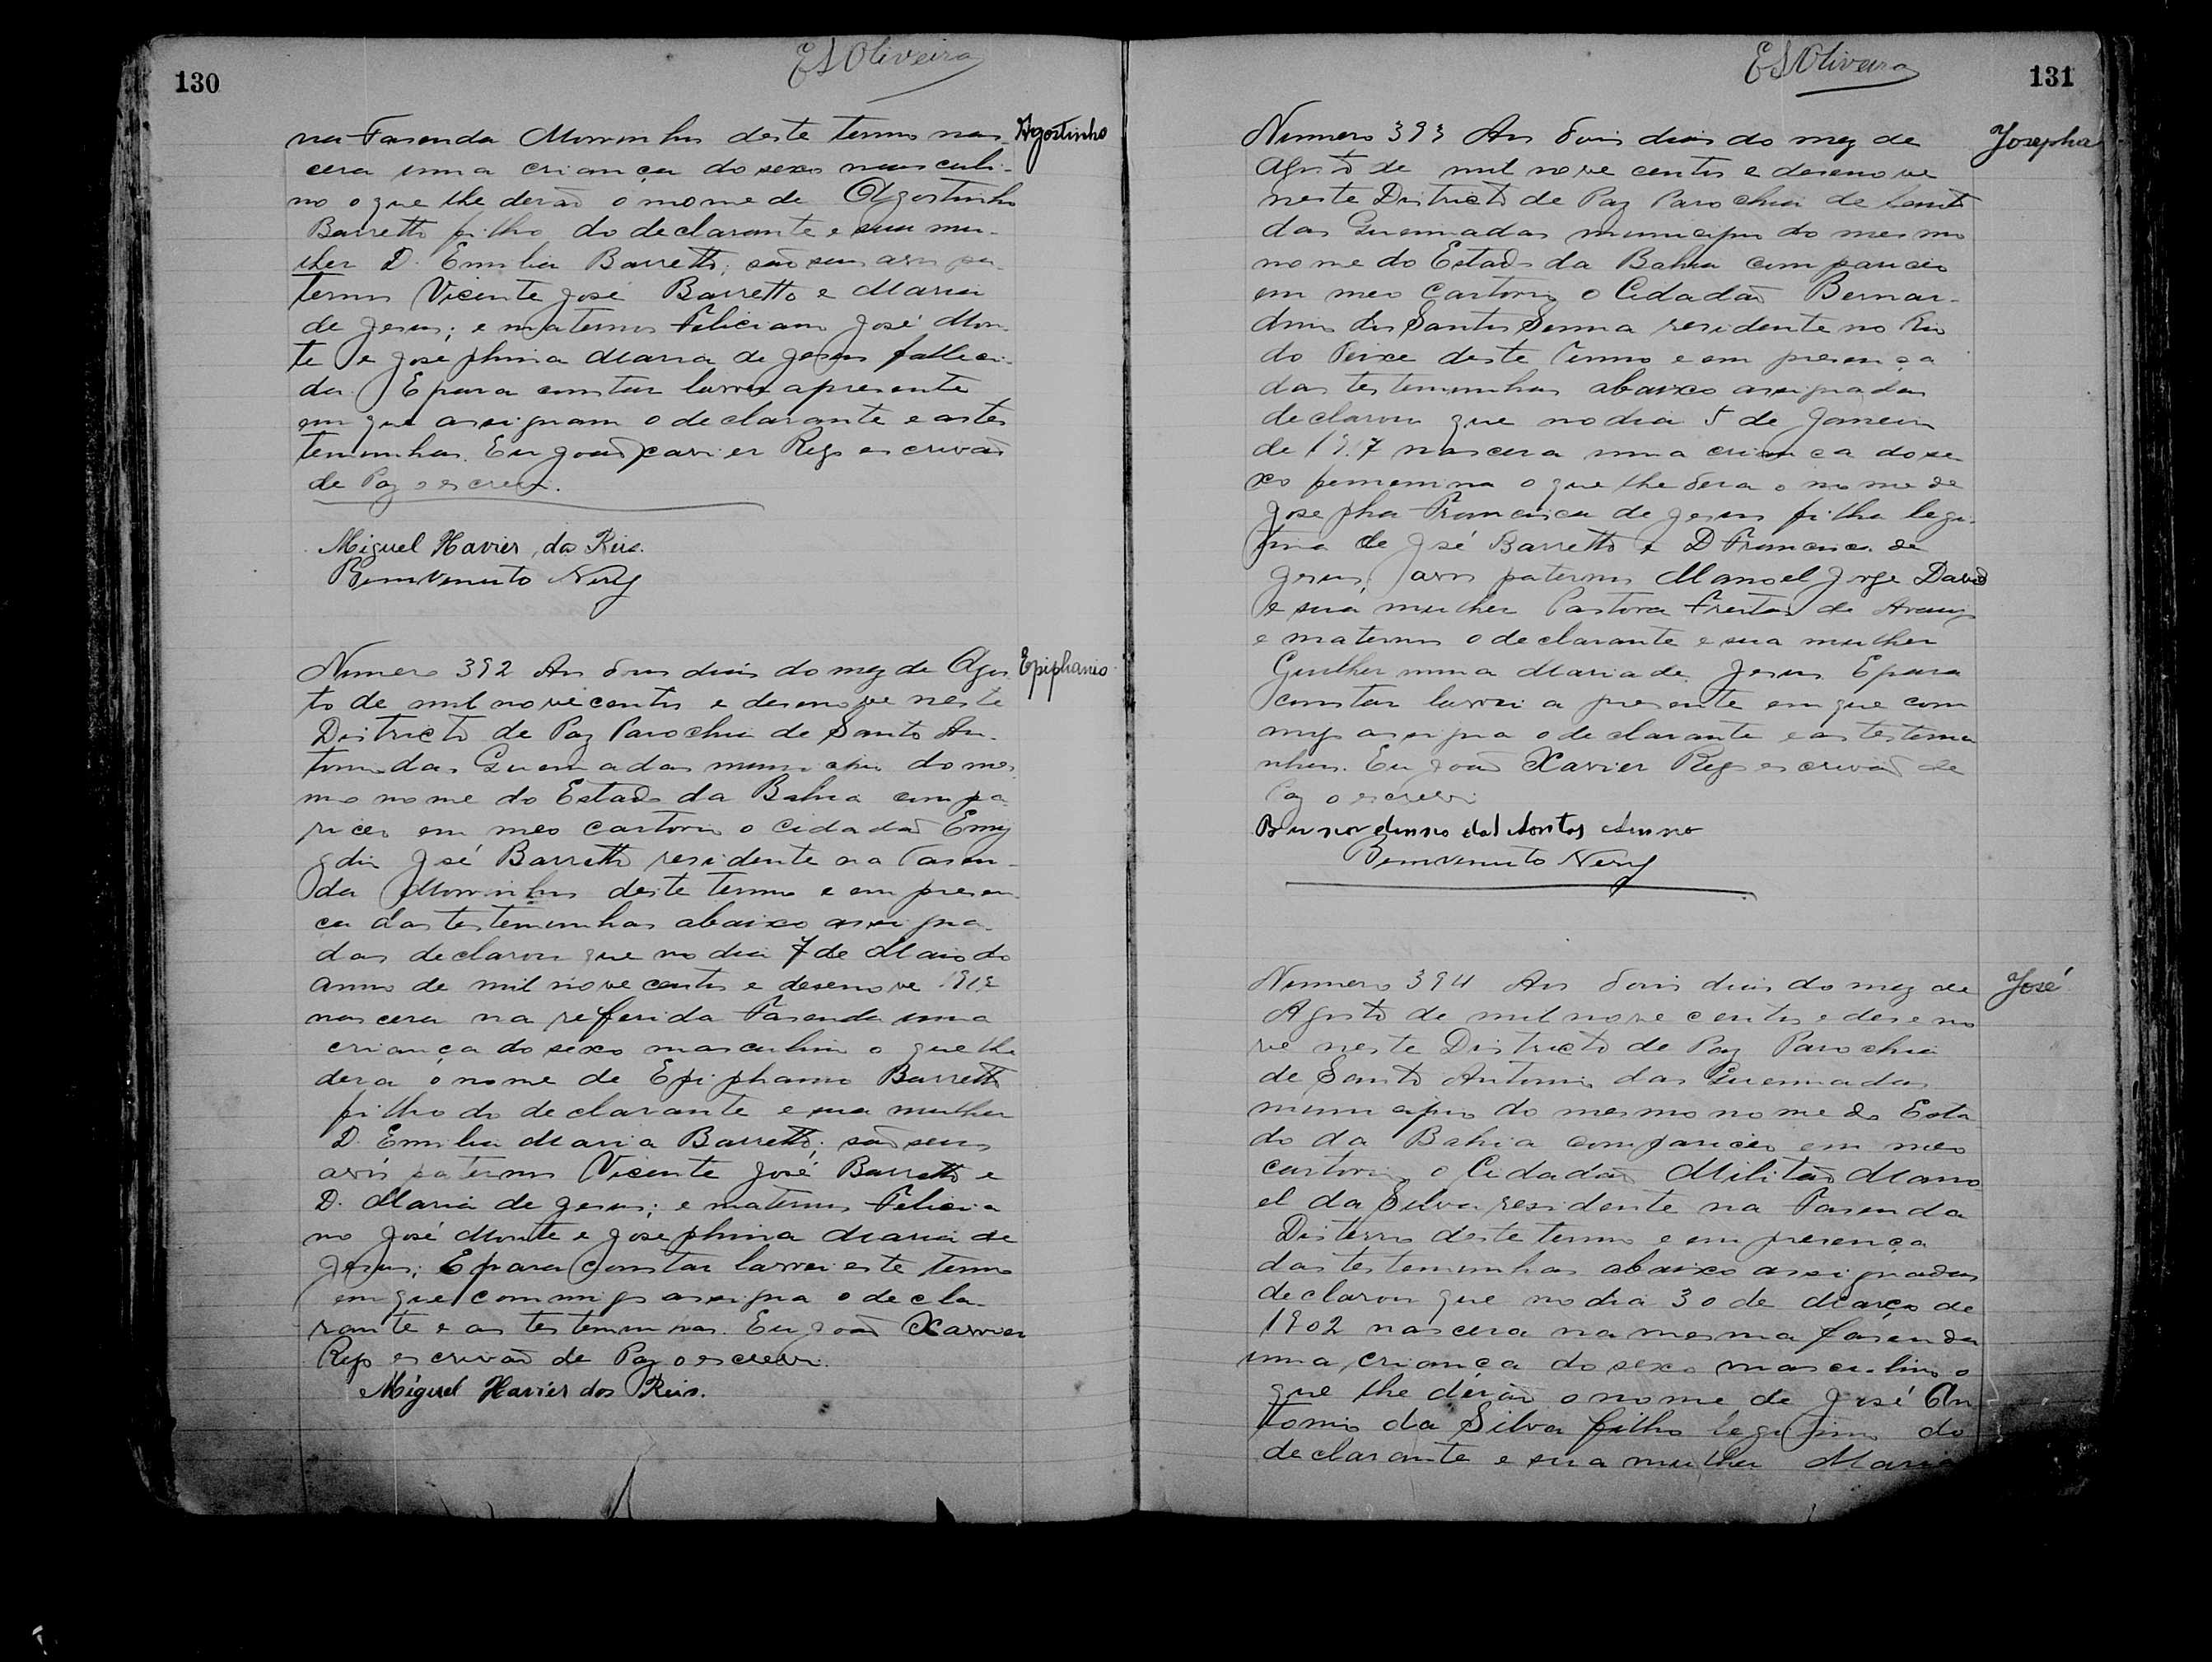 130
ESOliveira
Agostinho
na Fasenda Morrinhos deste termo nas-
cera uma criança do sexo masculi-
no o que lhe derão o nome de Agostinho
Barretto filho do declarante e sua mu-
lher D. Emilia Barretto; são seus avós pa-
ternos Vicente José Barretto e Maria
de Jesus; e maternos Feliciano José Mon-
te e Josephina Maria de Jesus falleci-
da. E para constar lavrei a presente
em que assignam o declarante e as tes
temunhas. Eu João Xavier Rego escrivão
de Paz o escrevi.
Miguel Xavier dos Reis.
Bemvenuto Nery
Epiphanio
Numero 392 Aos dous dias do mez de Agos
to de mil nove centos e desenove neste
Districto de Paz Parochia de Santo An-
tonio das Queimadas municipio do mes
mo nome do Estado da Bahia compa
riceo em meo cartorio o Cidadão Emy
gdio José Barretto residente na Fasen-
da Morrinhos deste termo e em presen-
ça das testemunhas abaixo assigna-
das declarou que no dia 7 de Maio do
anno de mil nove centos e desenove 1919
nascera na referida Fasenda uma
criança do sexo masculino o que lhe
dera o nome de Epiphanio Barretto
filho do declarante e sua mulher
D. Emilia Maria Barretto; são seus
avós paternos Vicente José Barretto e
D. Maria de Jesus; e maternos Felicia
no José Monte e Josephina Maria de
Jesus; E para constar lavrei este termo
em que commigo assigna o decla-
rante e as testemunhas. Eu João Xavier
Rego escrivão de Paz o escrevi.
Miguel Xavier dos Reis.
131
ESOliveira
Josepha
Numero 393 Aos dois dias do mez de
Agosto de mil nove centos e desenove
neste Districto de Paz Parochia de Santo
das Queimadas municipio do mesmo
nome do Estado da Bahia compariceo
em meo cartorio o Cidadão Bernar-
dino dos Santos Senna residente no Rio
do Peixe deste Termo e em presença
das testemunhas abaixo assignadas
declarou que no dia 5 de Janeiro
de 1917 nascera uma criança do se
xo femenino o que lhe dera o nome de
Josepha Francisca de Jesus filha legi-
tima de José Barretto e D Francisca de
Jesus; avós paternos Manoel Jorge David
e sua mulher Pastora Freitas de Araujo
e maternos o declarante e sua mulher
Guilhermina Maria de Jesus E para
constar lavrei a presente em que com
migo assigna o declarante e as testemu
nhas. Eu João Xavier Rego escrivão de
Paz o escrevi
Bernardinno dos Santos Senno
Bemvenuto Nery
José
Numero 394 Aos dois dias do mez de
Agosto de mil nove centos e deseno
ve neste Districto de Paz Parochia
de Santo Antonio das Queimadas
municipio do mesmo nome do Esta
do da Bahia compariceo em meo
cartorio o Cidadão Militão Mano
el da Silva residente na Fasenda
Disterro deste termo e em presença
das testemunhas abaixo assignadas
declarou que no dia 30 de Março de
1902 nascera na mesma fasenda
uma criança do sexo masculino o
que lhe derão o nome de José An
tonio da Silva filho legitimo do
declarante e sua mulher Maria